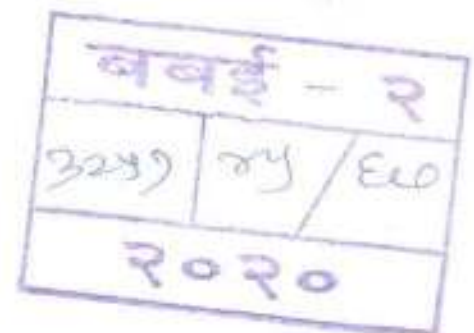 बबई - २
३२५१ २५/६७
२०२०